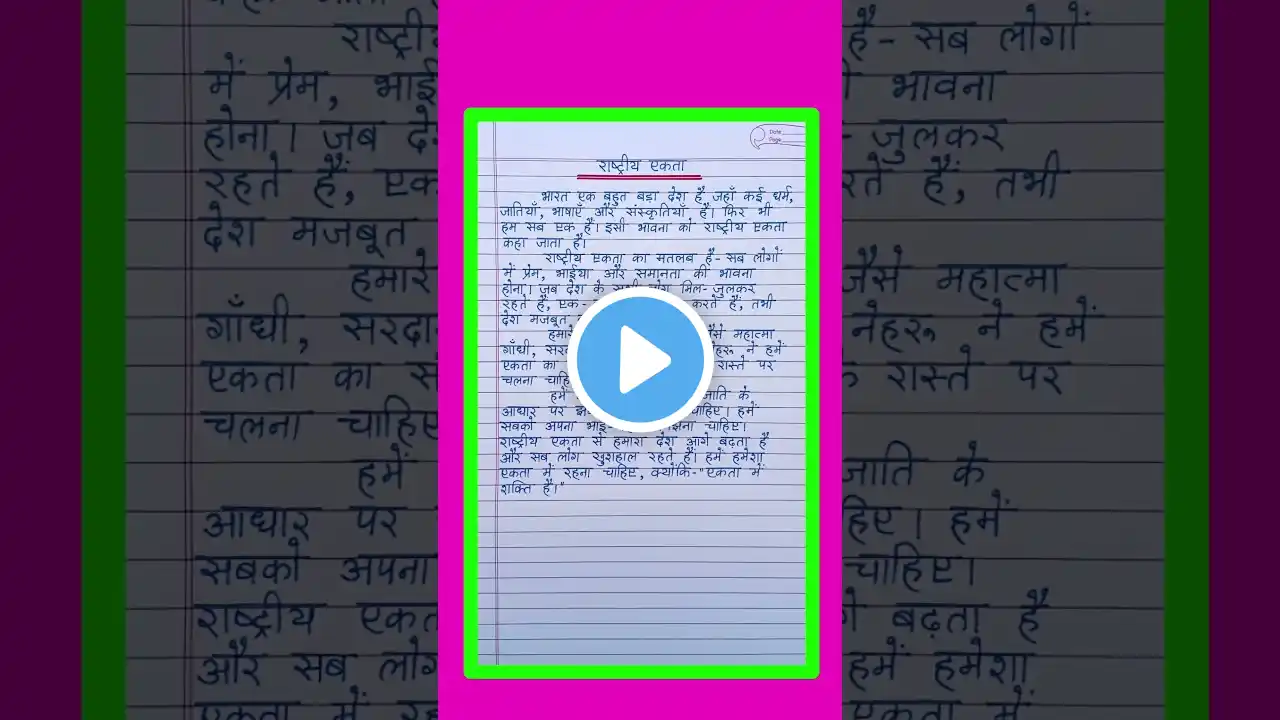 Date
Page
राष्ट्रीय एकता
भारत एक बहुत बड़ा देश है, जहाँ कई धर्म,
जातियाँ, भाषाएँ और संस्कृतियाँ है। फिर भी
हम सब एक है। इसी भावना को राष्ट्रीय एकता
कहा जाता है।
राष्ट्रीय एकता का मतलब है- सब लोगों
में प्रेम, भाईचा और समानता की भावना
होना। जब देश के सभी लोग मिल- जुलकर
रहते हैं, एक- करते हैं, तभी
देश मजबूत
हमारे जैसे महात्मा
गाँधी, नेहरू ने हमें
एकता का रास्ते पर
चलना
हमें जाति के
आधार पर चाहिए। हमें
सबको अपना भाई- चाहिए।
राष्ट्रीय एकता से हमारा देश आगे बढ़ता है
और सब लोग खुशहाल रहते है। हमें हमेशा
एकता में रहना चाहिए, क्योंकि-"एकता में
शक्ति है।"